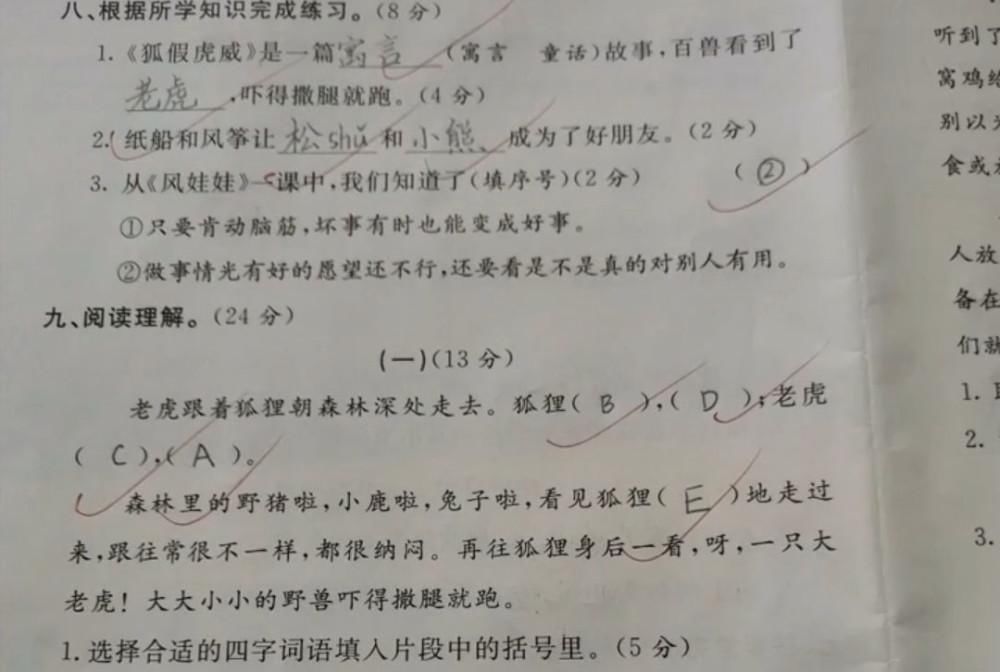 八、根据所学知识完成练习。(8分)
1.《狐假虎威》是一篇寓言(寓言 童话)故事,百兽看到了
老虎,吓得撒腿就跑。(4分)
2.纸船和风筝让松shǔ和小熊成为了好朋友。(2分)
3.从《风娃娃》一课中,我们知道了(填序号)(2分) (②)
①只要肯动脑筋,坏事有时也能变成好事。
②做事情光有好的愿望还不行,还要看是不是真的对别人有用。
九、阅读理解。(24分)
(一)(13分)
老虎跟着狐狸朝森林深处走去。狐狸( B ),( D );老虎
( C ),( A )。
森林里的野猪啦,小鹿啦,兔子啦,看见狐狸( E )地走过
来,跟往常很不一样,都很纳闷。再往狐狸身后一看,呀,一只大
老虎!大大小小的野兽吓得撒腿就跑。
1.选择合适的四字词语填入片段中的括号里。(5分)
听到了
窝鸡给
别以为
食或
人放
备在
们就
1.
2.
3.